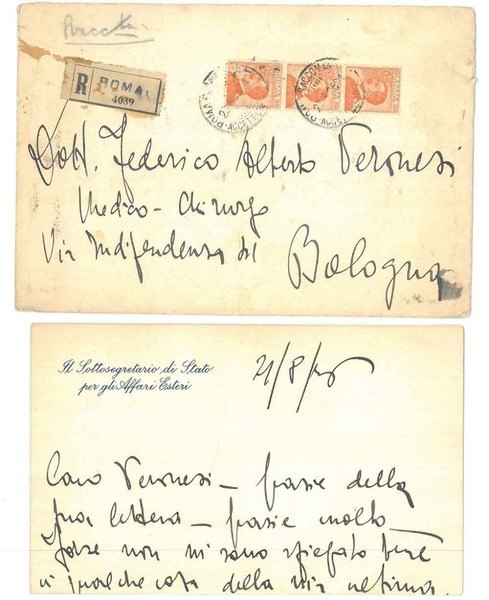 Raccta
R ROMA 1
4039
Dott. Federico Alberto Veronesi
Medico-Chirurgo
Via Indipendenza
Bologna
Il Sottosegretario di Stato
per gli Affari Esteri
21/8/
Caro Veronesi - grazie della
tua lettera - grazie molto -
Forse non mi sono spiegato bene
in qualche cosa della mia ultima.